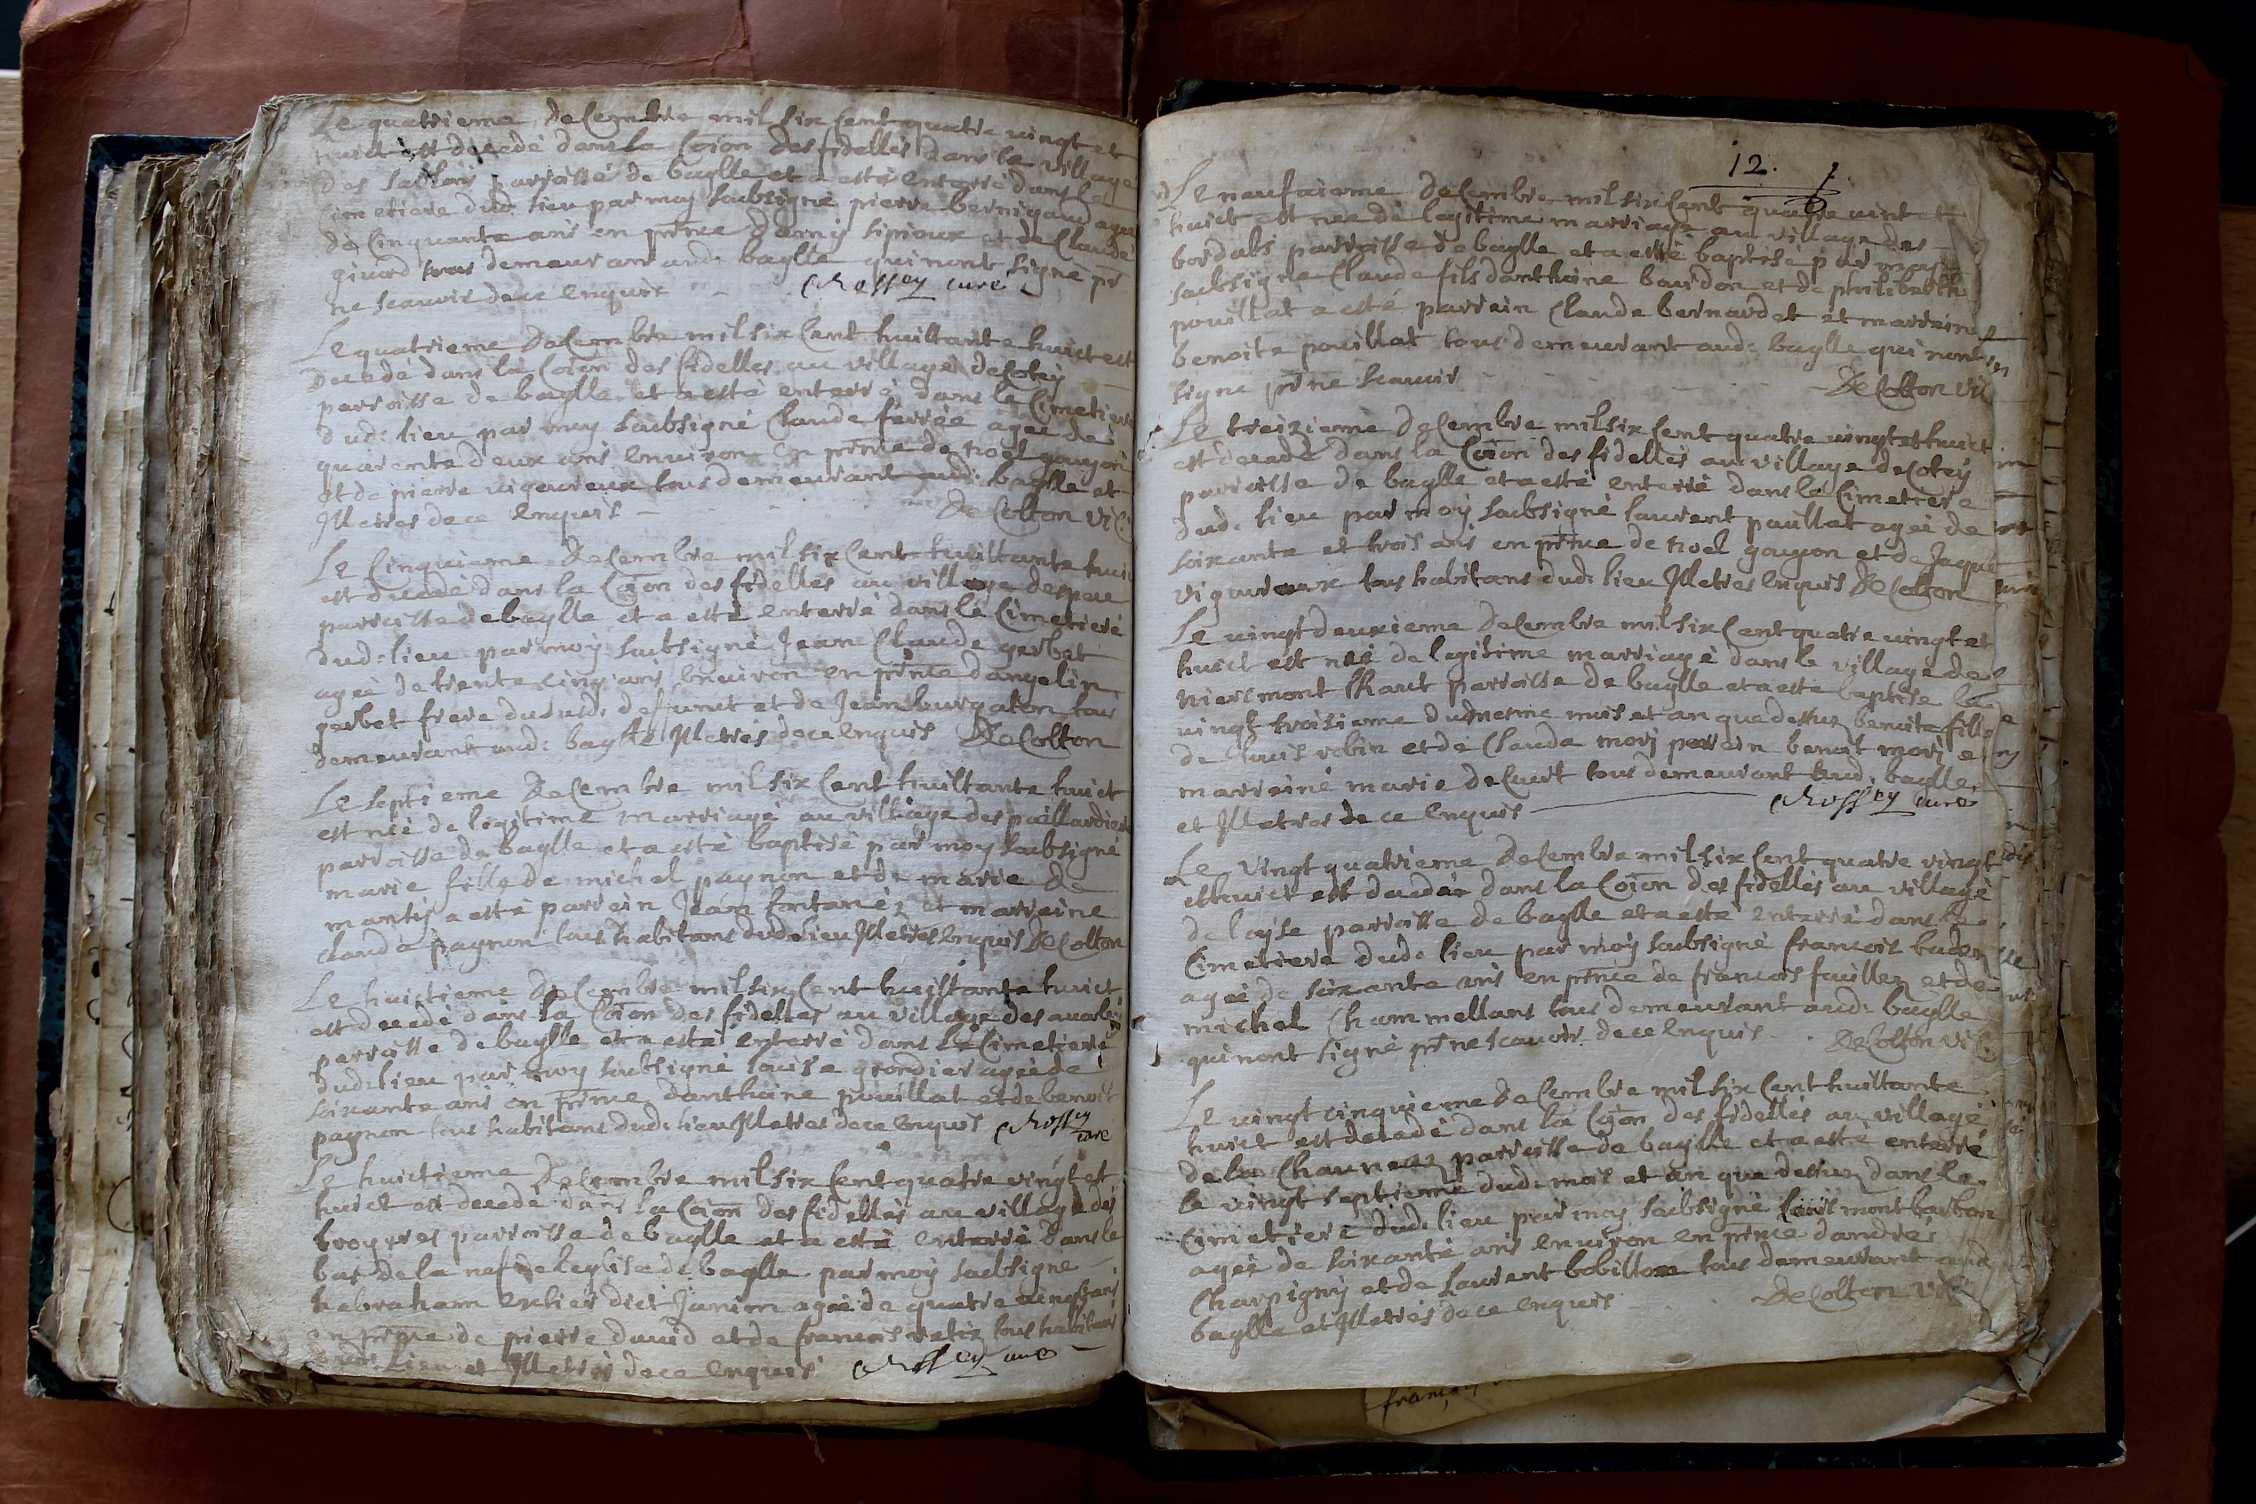 Le quatrieme decembre mil six cent quatre vingt et
huict est decedé dans la Coion des fidelles dans le village
des parroisse de baglle et a esté enterré dans le
Cimetiere dud: lieu par moy soubsigné pierre bernigaud agée
de Cinquante ans en pñce et de Claude
giuord tous demeurans aud: baglle qui nont signé pr
ne scauoir de ce Enquis Rossey curé
Le quatrieme decembre mil six Cent huittante huict est
Decedé dans la Coion des fidelles au village de Cotey
parroisse de baglle et a esté enterré dans le Cimetiere
dud: lieu par moy soubsigné Claude ferrée agée de
quarente deux ans Enuiron En pñce de noel gouyon
et de pierre vigoureux tous demeurant aud: baglle et
Illetres de ce Enquis DeColton vic
Le Cinquieme decembre mil six Cent huittante huict
est decedé dans la Coion des fidelles au village despeu
parroisse de baglle et a esté enterré dans le Cimetiere
dud: lieu par moy soubsigné Jean Claude gerbet
agée de trente cinq ans Enuiron en pñce dangelin
gerbet frere dususd: deffunct et de Jean burgaton tous
demeurant aud: baglle Illetrés de ce Enquis DeColton
Le septieme decembre mil six Cent huittante huict
est née de legitime marriage au village des paillardieres
parroisse de baglle et a esté baptisé par moy soubsigné
marie fille de michel pagnon et de marie de
a esté parrein Jean fontanéz et marreine
clauda pagnon tous habitans dudt lieu Illetres Enquis DeColton
Le huictieme decembre mil six Cent huittante huict
est decedé dans la Coion des fidelles au village des
parroisse de baglle et a esté enterré dans le Cimetiere
dud: lieu par moy soubsigné louise grondier agée de
soixante ans en pñce danthoine pouillat et de benoit
pagnon tous habitans dud: lieu Illetres de ce Enquis Rossey
curé
Le huictieme decembre mil six Cent quatre vingt et
huict est decedé dans la Coion des fidelles au village des
broyeres parroisse de baglle et a esté enterré dans le
bas de la nef de leglise de baglle par moy soubsigne
habraham dict Janim agée de quatre vingt ans
en pñce de pierre dauid et de francois retiz tous habitans
dud: lieu et Illetrés de ce Enquis Rossey curé
12.
Le neufuieme decembre mil six Cent quatre vint et
huict est nee de legitime marriage au village des
bordats parroisse de baglle et a esté baptisé par moy
soubsigne Claude fils danthoine bourdon et de philiberth
pouillat a esté parrein Claude bernardet et marreine
benoite pouillat tous demeurant aud: baglle qui nont
signe pr ne scauoir DeColton vic
Le treizieme decembre mil six Cent quatre vingt et huict
est decedé dans la Coion des fidelles au village de Cotey
parroisse de baglle et a esté enterré dans le Cimetiere
dud: lieu par moy soubsigné laurent paullet agée de
soixante et trois ans en pñce de noel gouyon et de Jaque
vigoureux tous habitans dud: lieu Illetres Enquis DeColton
Le vingt deuxieme decembre mil six Cent quatre vingt et
huict est née de legitime marriage dans le village de
niermont lhaut parroisse de baglle et a esté baptisé la
vingt troisieme du mesme mois et an que dessus benoite fille
de louis robin et de Clauda morj parrein benoit morj e
marreine marie deCurt tous demeurant aud: baglle
et Illetres de ce Enquis Rossey curé
Le vingt quatrieme decembre mil six Cent quatre vingt
et huict est decedée dans la Coion des fidelles au village
de layse parroisse de baglle et a esté enterré dans le
Cimetiere dud: lieu par moy soubsigné francois
agée de soixante ans en pñce de francois fuillez et de
michel Chammellans tous demeurant aud: baglle
qui nont signé pr ne scauoir de ce Enquis DeColton vic
Le vingt cinquieme decembre mil six Cent huittante
huict est decedé dans la Coion des fidelles au village
de la Chauneaz parroisse de baglle et a esté enterré
le vingt septieme dud: mois et an que dessuz dans le
Cimetiere dud: lieu par moy soubsigné louis montbarbon
agée de soixante ans enuiron en pñce dandré
Charpigny et de laurent bobillon tous demeurant aud:
baglle et Illetrés de ce Enquis DeColton vic